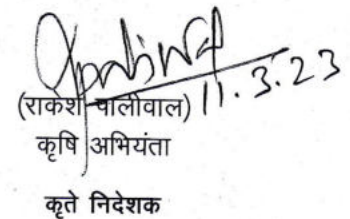 11.3.23
(राकेश पालीवाल)
कृषि अभियंता
कृते निदेशक